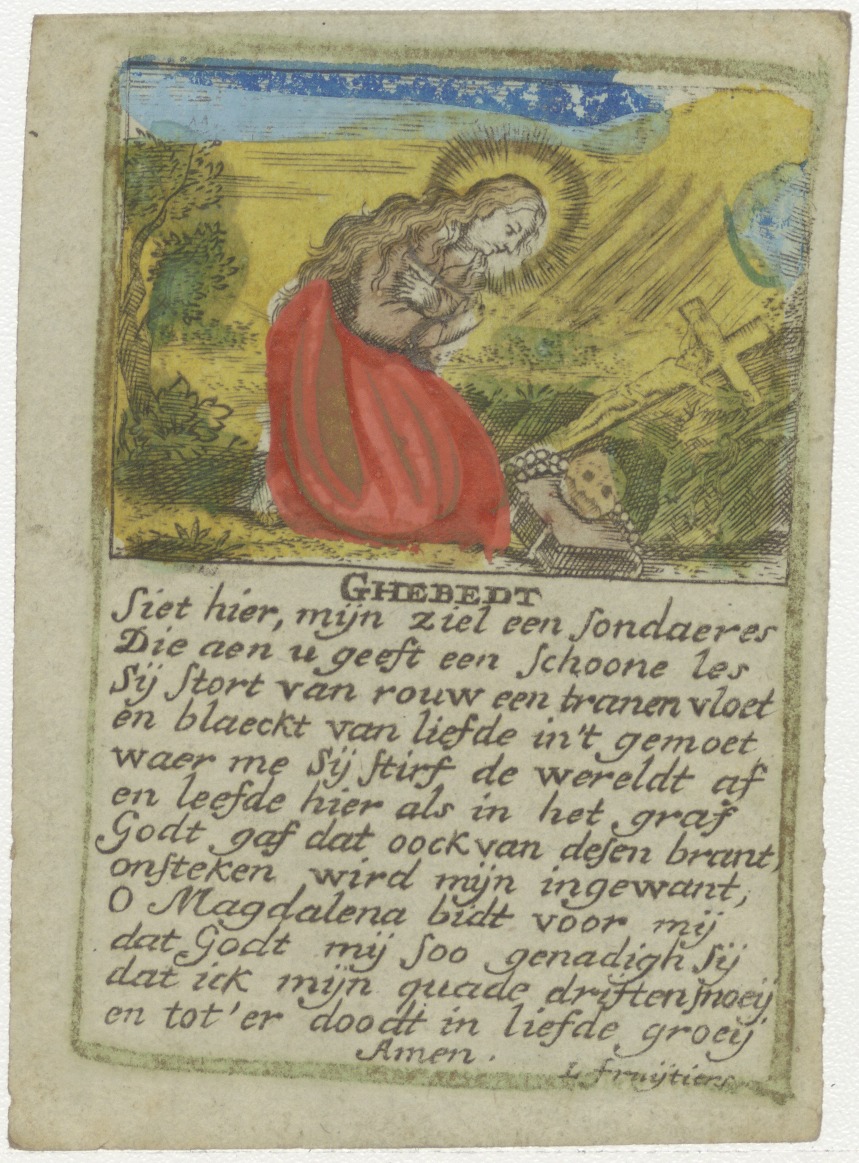 GHEBEDT
Siet hier, mijn ziel een sondaeres
Die aen u geeft een schoone les
Sij stort van rouw een tranen vloet
en blaeckt van liefde in't gemoet
waer me Sij stirf de wereldt af
en leefde hier als in het graf
Godt gaf dat oock van desen brant,
onsteken wird mijn ingewant,
O Magdalena bidt voor mij
dat Godt mij soo genadigh sij
dat ick mijn quade driften snoeij
en tot'er doodt in liefde groeij
Amen.
L fruijtiers